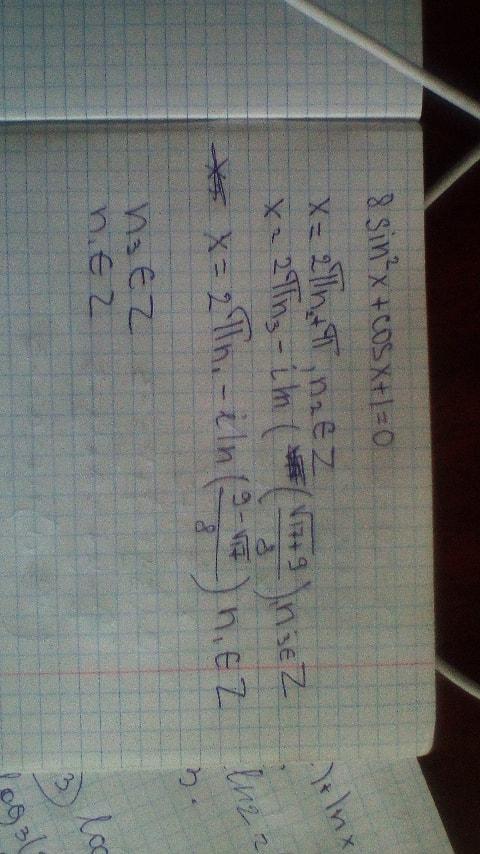 8 sin²x + cosx + 1 = 0
x = 2πn₂ + π, n₂ ∈ Z
x = 2πn₃ - i ln ( (√17 + 9)/8 ), n₃ ∈ Z
x = 2πn₁ - i ln ( (9 - √17)/8 ) n₁ ∈ Z
n₃ ∈ Z
n₁ ∈ Z
) + ln x
ln2 =
3)
log₃(